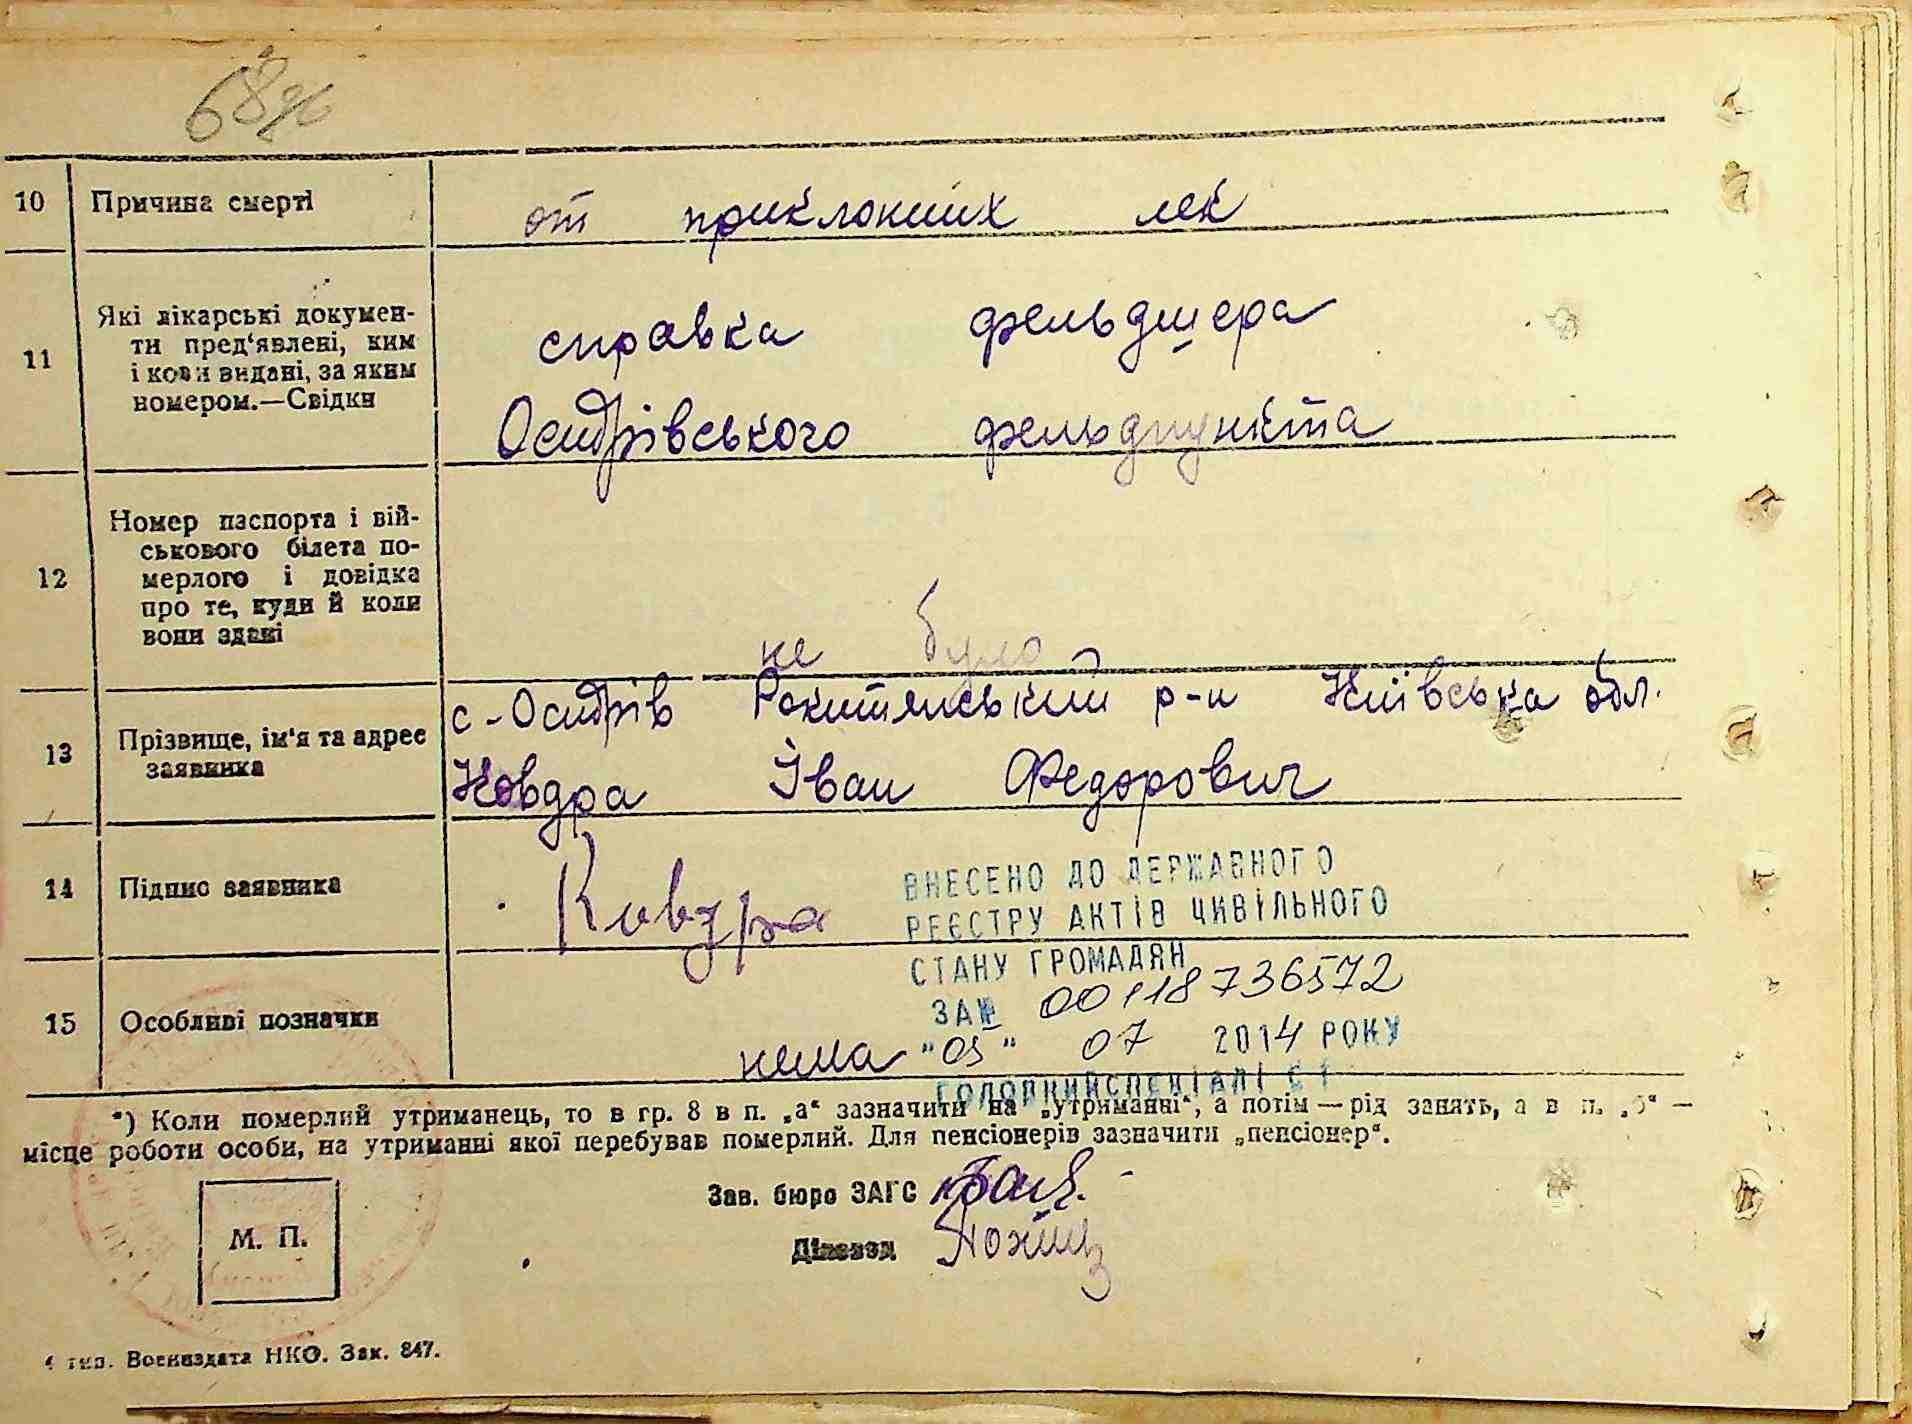 68зв
10 Причина смерті от приклоних лек
11 Які лікарські докумен-
ти пред'явлені, ким
і коли видані, за яким
номером.—Свідки
справка фельдшера
Острівського фельдпункта
12 Номер паспорта і вій-
ськового білета по-
мерлого і довідка
про те, куди й коли
вони здані
не було
13 Прізвище, ім'я та адрес
заявника
с-Острів Рокитянський р-н Київська обл.
Ковдра Іван Федорович
14 Підпис заявника Ковдра
15 Особливі позначки нема
ВНЕСЕНО ДО ДЕРЖАВНОГО
РЕЄСТРУ АКТІВ ЦИВІЛЬНОГО
СТАНУ ГРОМАДЯН
ЗА№ 00118736572
"05" 07 2014 РОКУ
ГОЛОВНИЙ СПЕЦІАЛІСТ
*) Коли померлий утриманець, то в гр. 8 в п. „а“ зазначити на „утриманні“, а потім — рід занять, а в п. „б“ —
місце роботи особи, на утриманні якої перебував померлий. Для пенсіонерів зазначити „пенсіонер“.
Зав. бюро ЗАГС
Діловод
М. П.
4 тип. Воениздата НКО. Зак. 847.